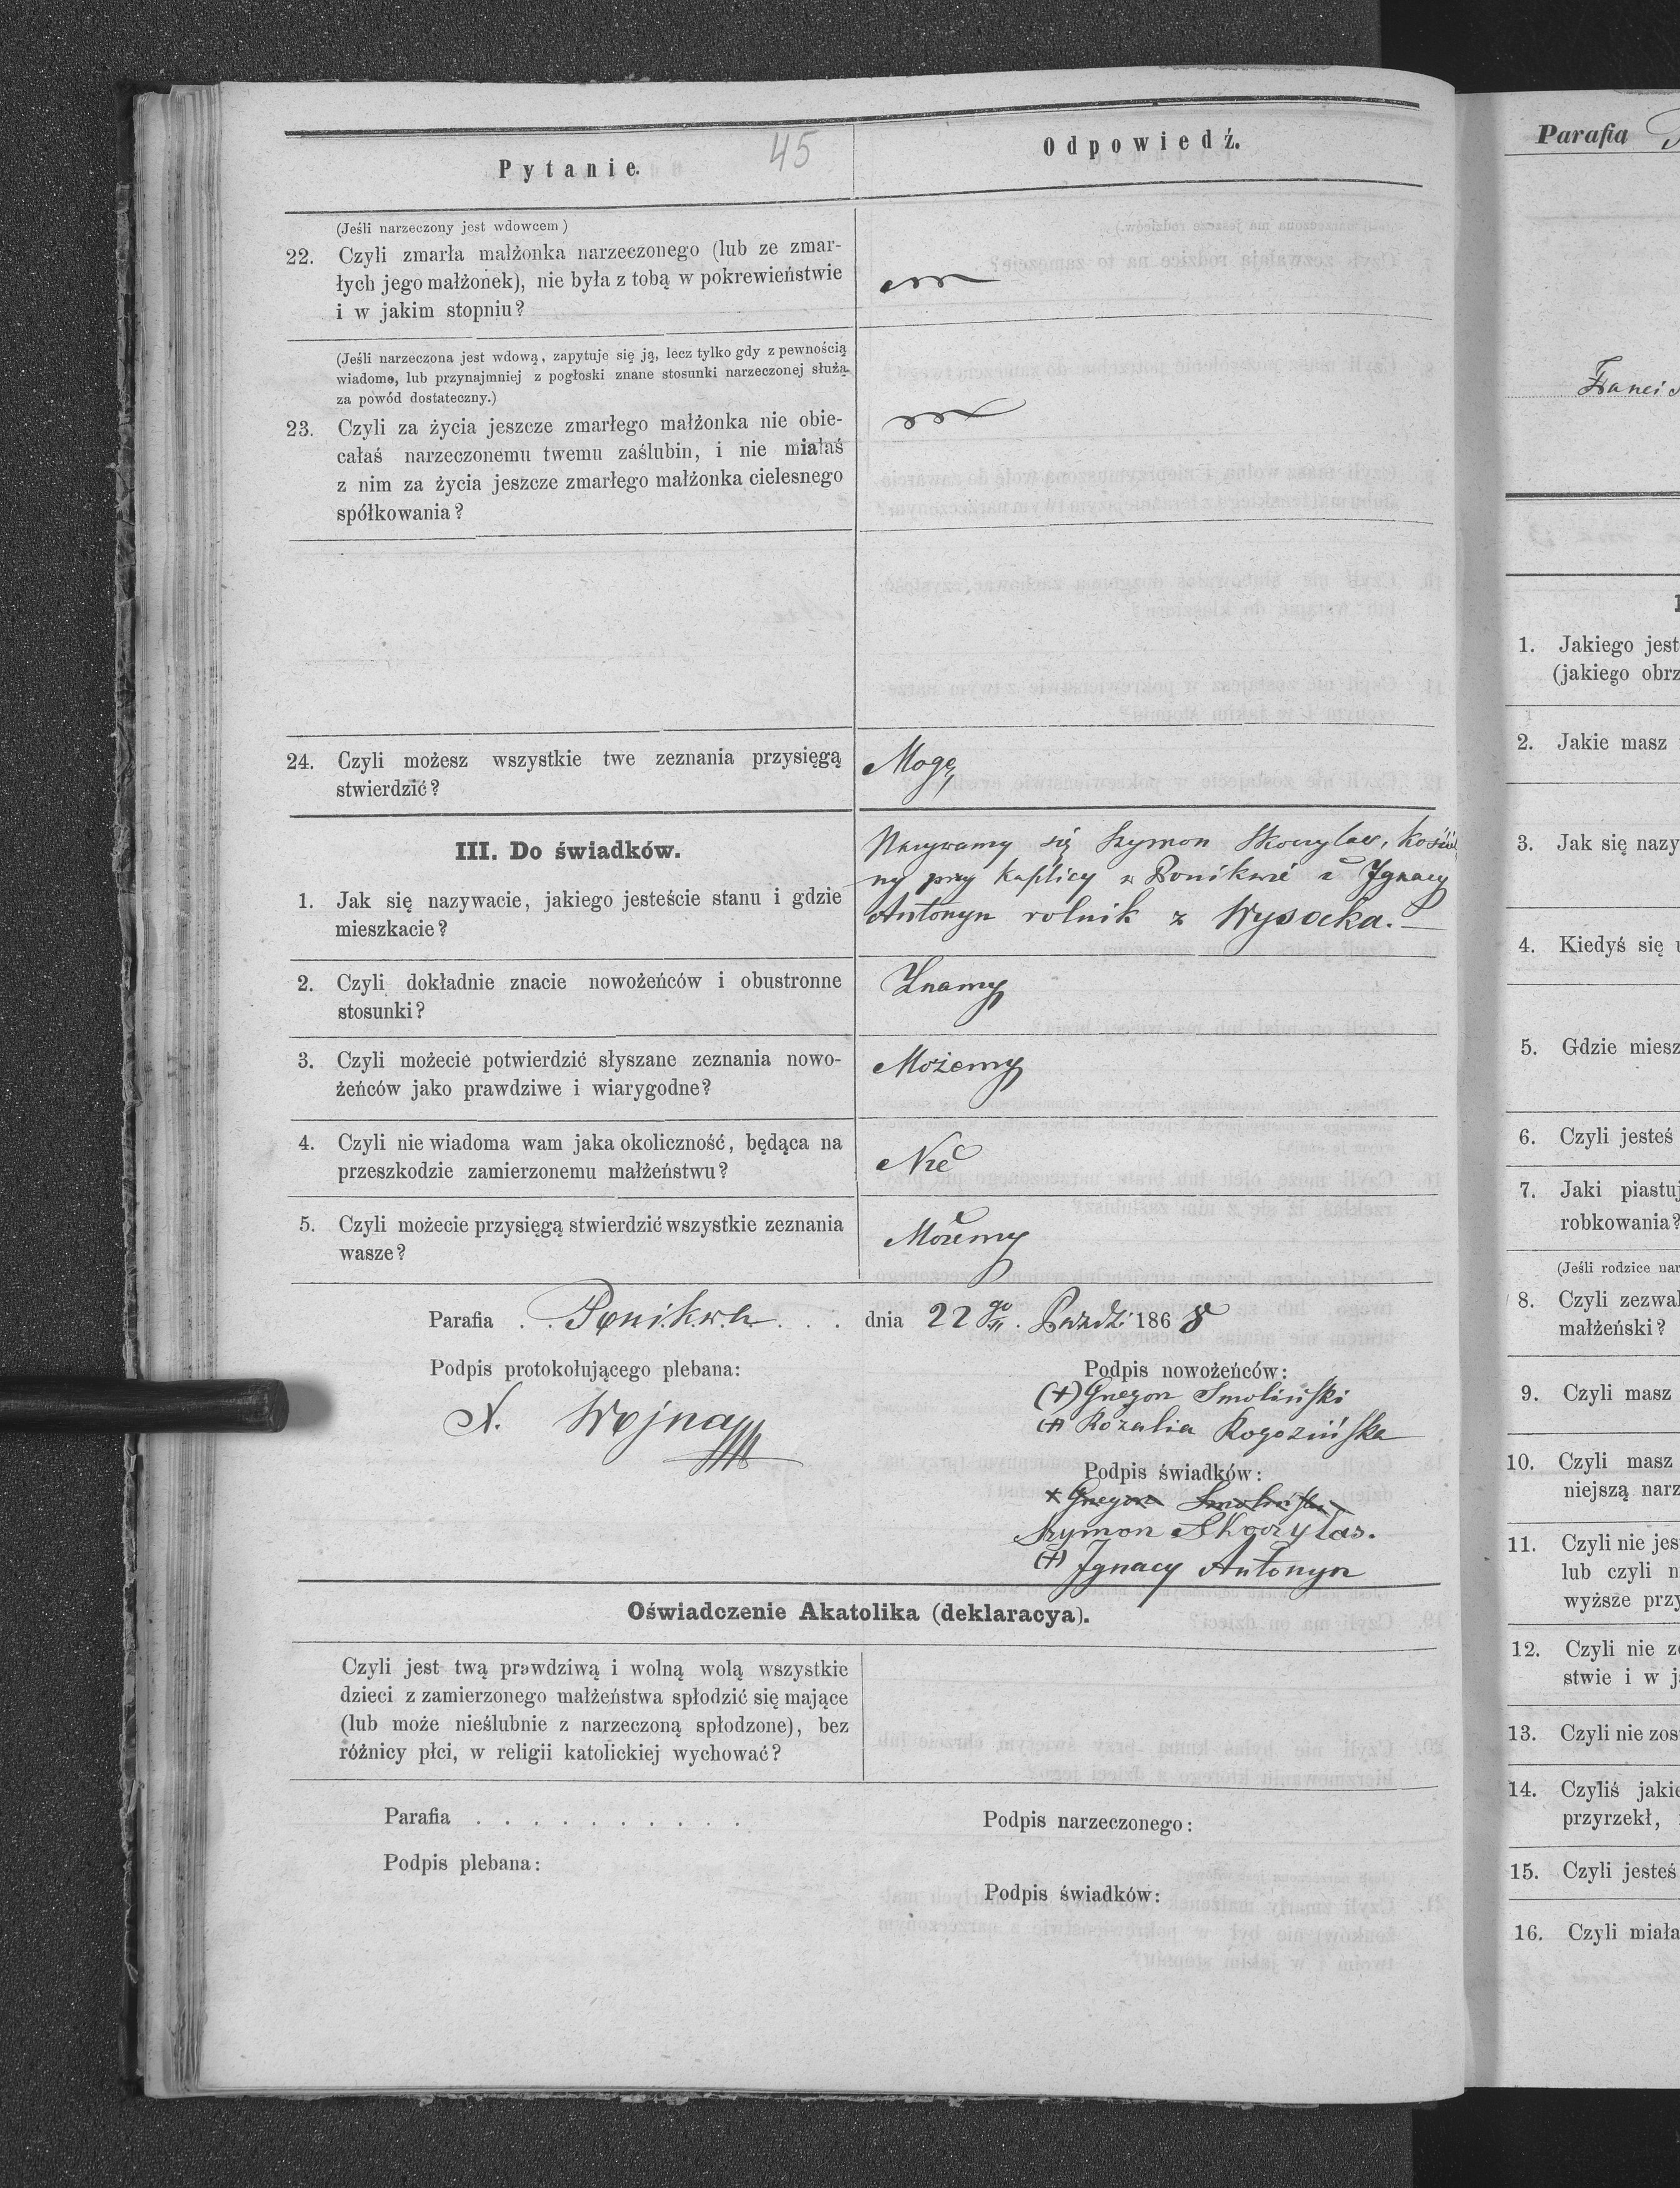 45
Pytanie.
Odpowiedź.
(Jeśli narzeczony jest wdowcem)
22. Czyli zmarła małżonka narzeczonego (lub ze zmar-
łych jego małżonek), nie była z tobą w pokrewieństwie
i w jakim stopniu?
(Jeśli narzeczona jest wdową, zapytuje się ją, lecz tylko gdy z pewnością
wiadome, lub przynajmniej z pogłoski znane stosunki narzeczonej służą
za powód dostateczny.)
23. Czyli za życia jeszcze zmarłego małżonka nie obie-
całaś narzeczonemu twemu zaślubin, i nie miałaś
z nim za życia jeszcze zmarłego małżonka cielesnego
spółkowania?
24. Czyli możesz wszystkie twe zeznania przysięgą
stwierdzić?
Mogę
III. Do świadków.
1. Jak się nazywacie, jakiego jesteście stanu i gdzie
mieszkacie?
Nazywamy się Szymon Skoczylas, kościel
ny przy kaplicy w Ponikwie a Ignacy
Antonyn rolnik z Wysocka.
2. Czyli dokładnie znacie nowożeńców i obustronne
stosunki?
Znamy
3. Czyli możecie potwierdzić słyszane zeznania nowo-
żeńców jako prawdziwe i wiarygodne?
Możemy
4. Czyli nie wiadoma wam jaka okoliczność, będąca na
przeszkodzie zamierzonemu małżeństwu?
Nie
5. Czyli możecie przysięgą stwierdzić wszystkie zeznania
wasze?
Możemy
Parafia Ponikwa dnia 22go Paźdź 1868
Podpis protokołującego plebana:
N. Wojna
Podpis nowożeńców:
(+) Gregon Smoliński
(+) Rozalia Rogozińska
Podpis świadków:
+ Gregon Smoliński
Szymon Skoczylas.
(+) Ignacy Antonyn
Oświadczenie Akatolika (deklaracya).
Czyli jest twą prawdziwą i wolną wolą wszystkie
dzieci z zamierzonego małżeństwa spłodzić się mające
(lub może nieślubnie z narzeczoną spłodzone), bez
różnicy płci, w religii katolickiej wychować?
Parafia . . . . . . . . . .
Podpis plebana:
Podpis narzeczonego:
Podpis świadków:
Parafia
1. Jakiego jest
(jakiego obrz
2. Jakie masz
3. Jak się nazy
4. Kiedyś się u
5. Gdzie miesz
6. Czyli jesteś
7. Jaki piastuj
robkowania?
(Jeśli rodzice nar
8. Czyli zezwal
małżeński?
9. Czyli masz
10. Czyli masz
niejszą narz
11. Czyli nie jes
lub czyli n
wyższe przy
12. Czyli nie ze
stwie i w j
13. Czyli nie zos
14. Czyliś jakie
przyrzekł,
15. Czyli jesteś
16. Czyli miała